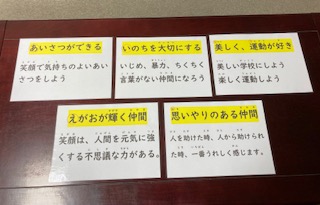 あいさつができる
笑顔で気持ちのよいあい
さつをしよう
いのちを大切にする
いじめ、暴力、ちくちく
言葉がない仲間になろう
美しく、運動が好き
美しい学校にしよう
楽しく運動しよう
えがおが輝く仲間
笑顔は、人間を元気に強
くする不思議な力がある。
思いやりのある仲間
人を助けた時、人から助けられ
た時、一番うれしく感じます。